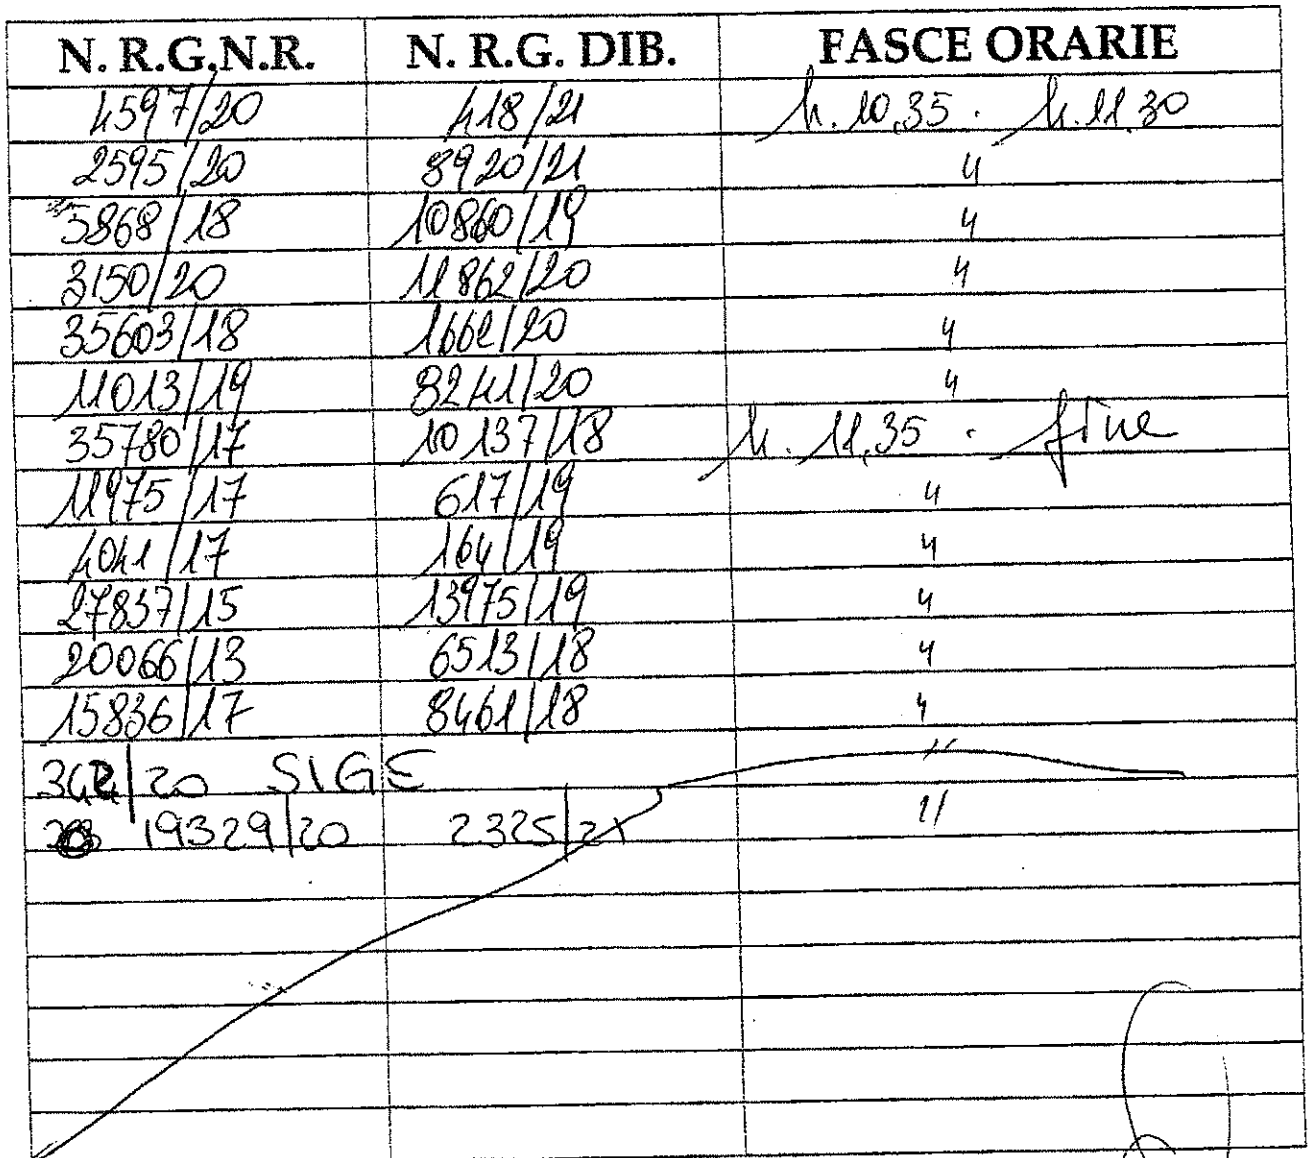 N. R.G.N.R. N. R.G. DIB. FASCE ORARIE
4597/20 418/21 h. 10,35 - h. 11.30
2595/20 8920/21 "
5868/18 10860/19 "
3150/20 11862/20 "
35603/18 1662/20 "
11013/19 8241/20 "
35780/17 10137/18 h. 11,35 - fine
11975/17 617/19 "
4041/17 164/19 "
27837/15 13975/19 "
20066/13 6513/18 "
15836/17 8461/18 "
SIGE "
19329/20 2325/21 "